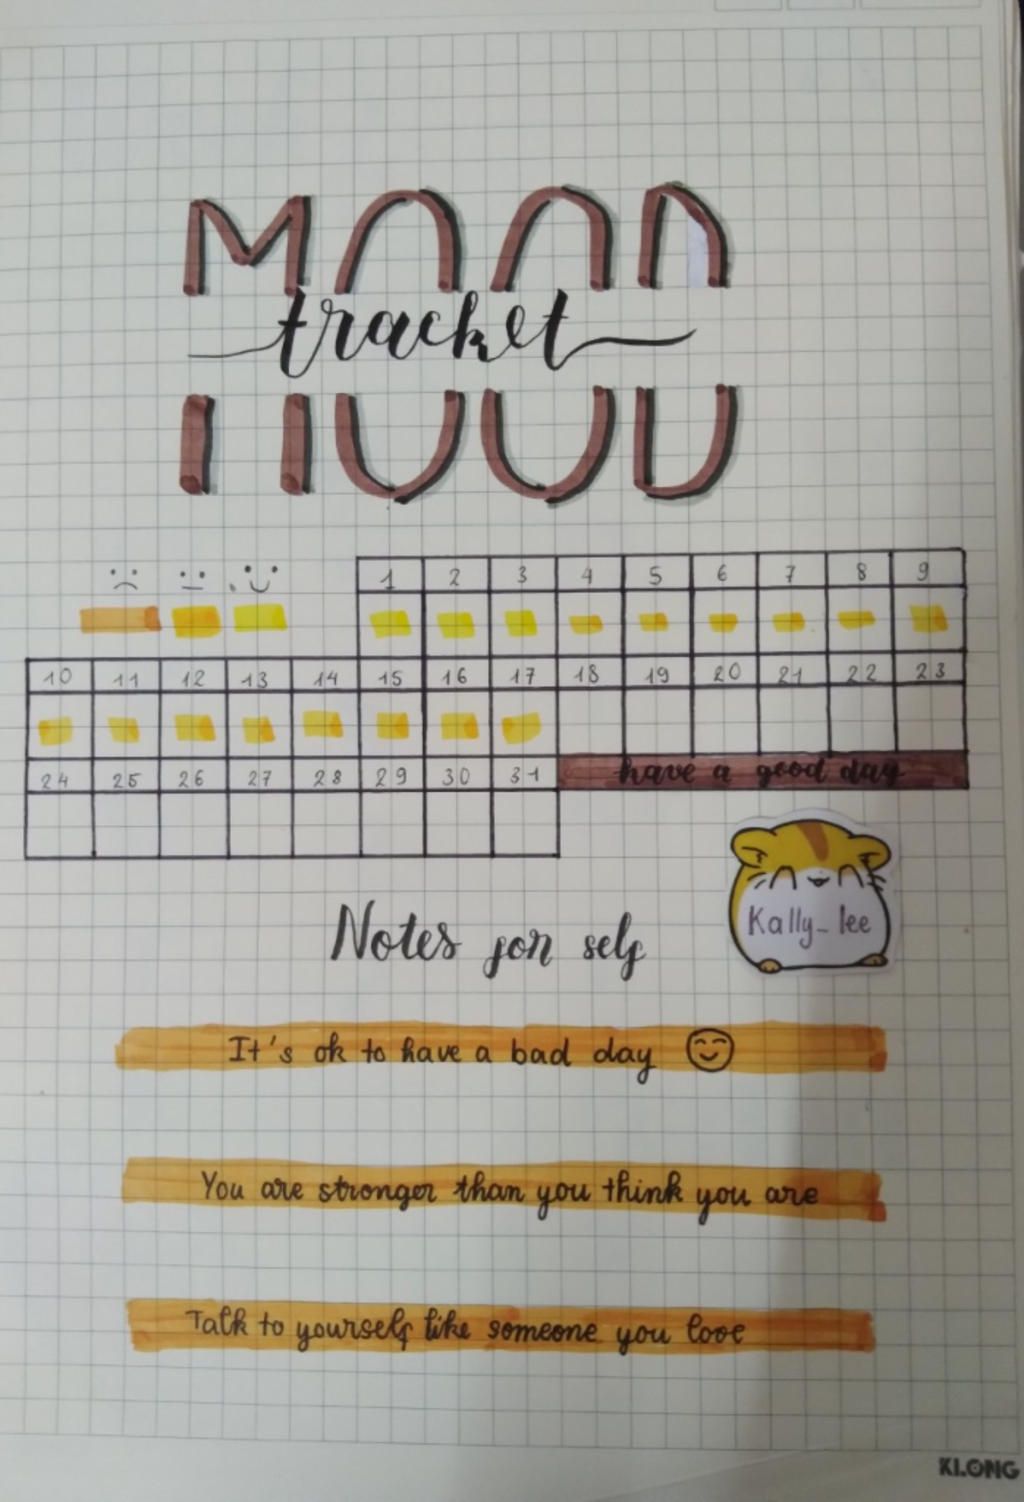 MOOD
tracket
1 2 3 4 5 6 7 8 9
10 11 12 13 14 15 16 17 18 19 20 21 22 23
24 25 26 27 28 29 30 31 have a good day
Kally_lee
Notes for self
It's ok to have a bad day
You are stronger than you think you are
Talk to yourself like someone you love
KLONG